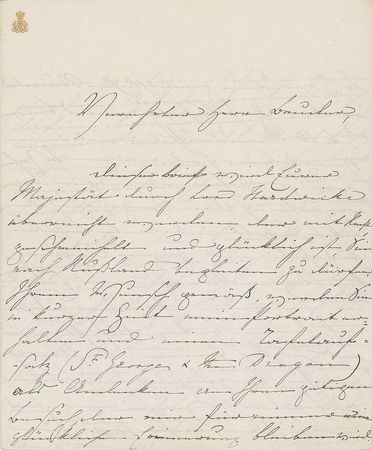 Verehrter Herr Bruder,
Dieser Brief wird Eurer
Majestät durch Lord Hardwicke
überreicht werden, der mit
und glücklich ist Sie
nach Rußland begleiten zu dürfen.
Ihrem Wunsch gemäß, werden Sie
in kurzer Zeit mein Portrait er-
halten und einen Tafelauf-
satz (St George & the Dragon)
als Andenken an Ihren gütigen
Besuch der mir für immer eine
glückliche Erinnerung bleiben wird